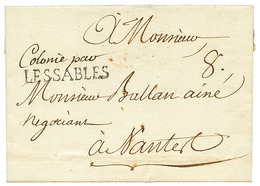 à Monsieur
Colonie par 8.
LES SABLES
Monsieur Ballan ainé
Negociant
à Nantes